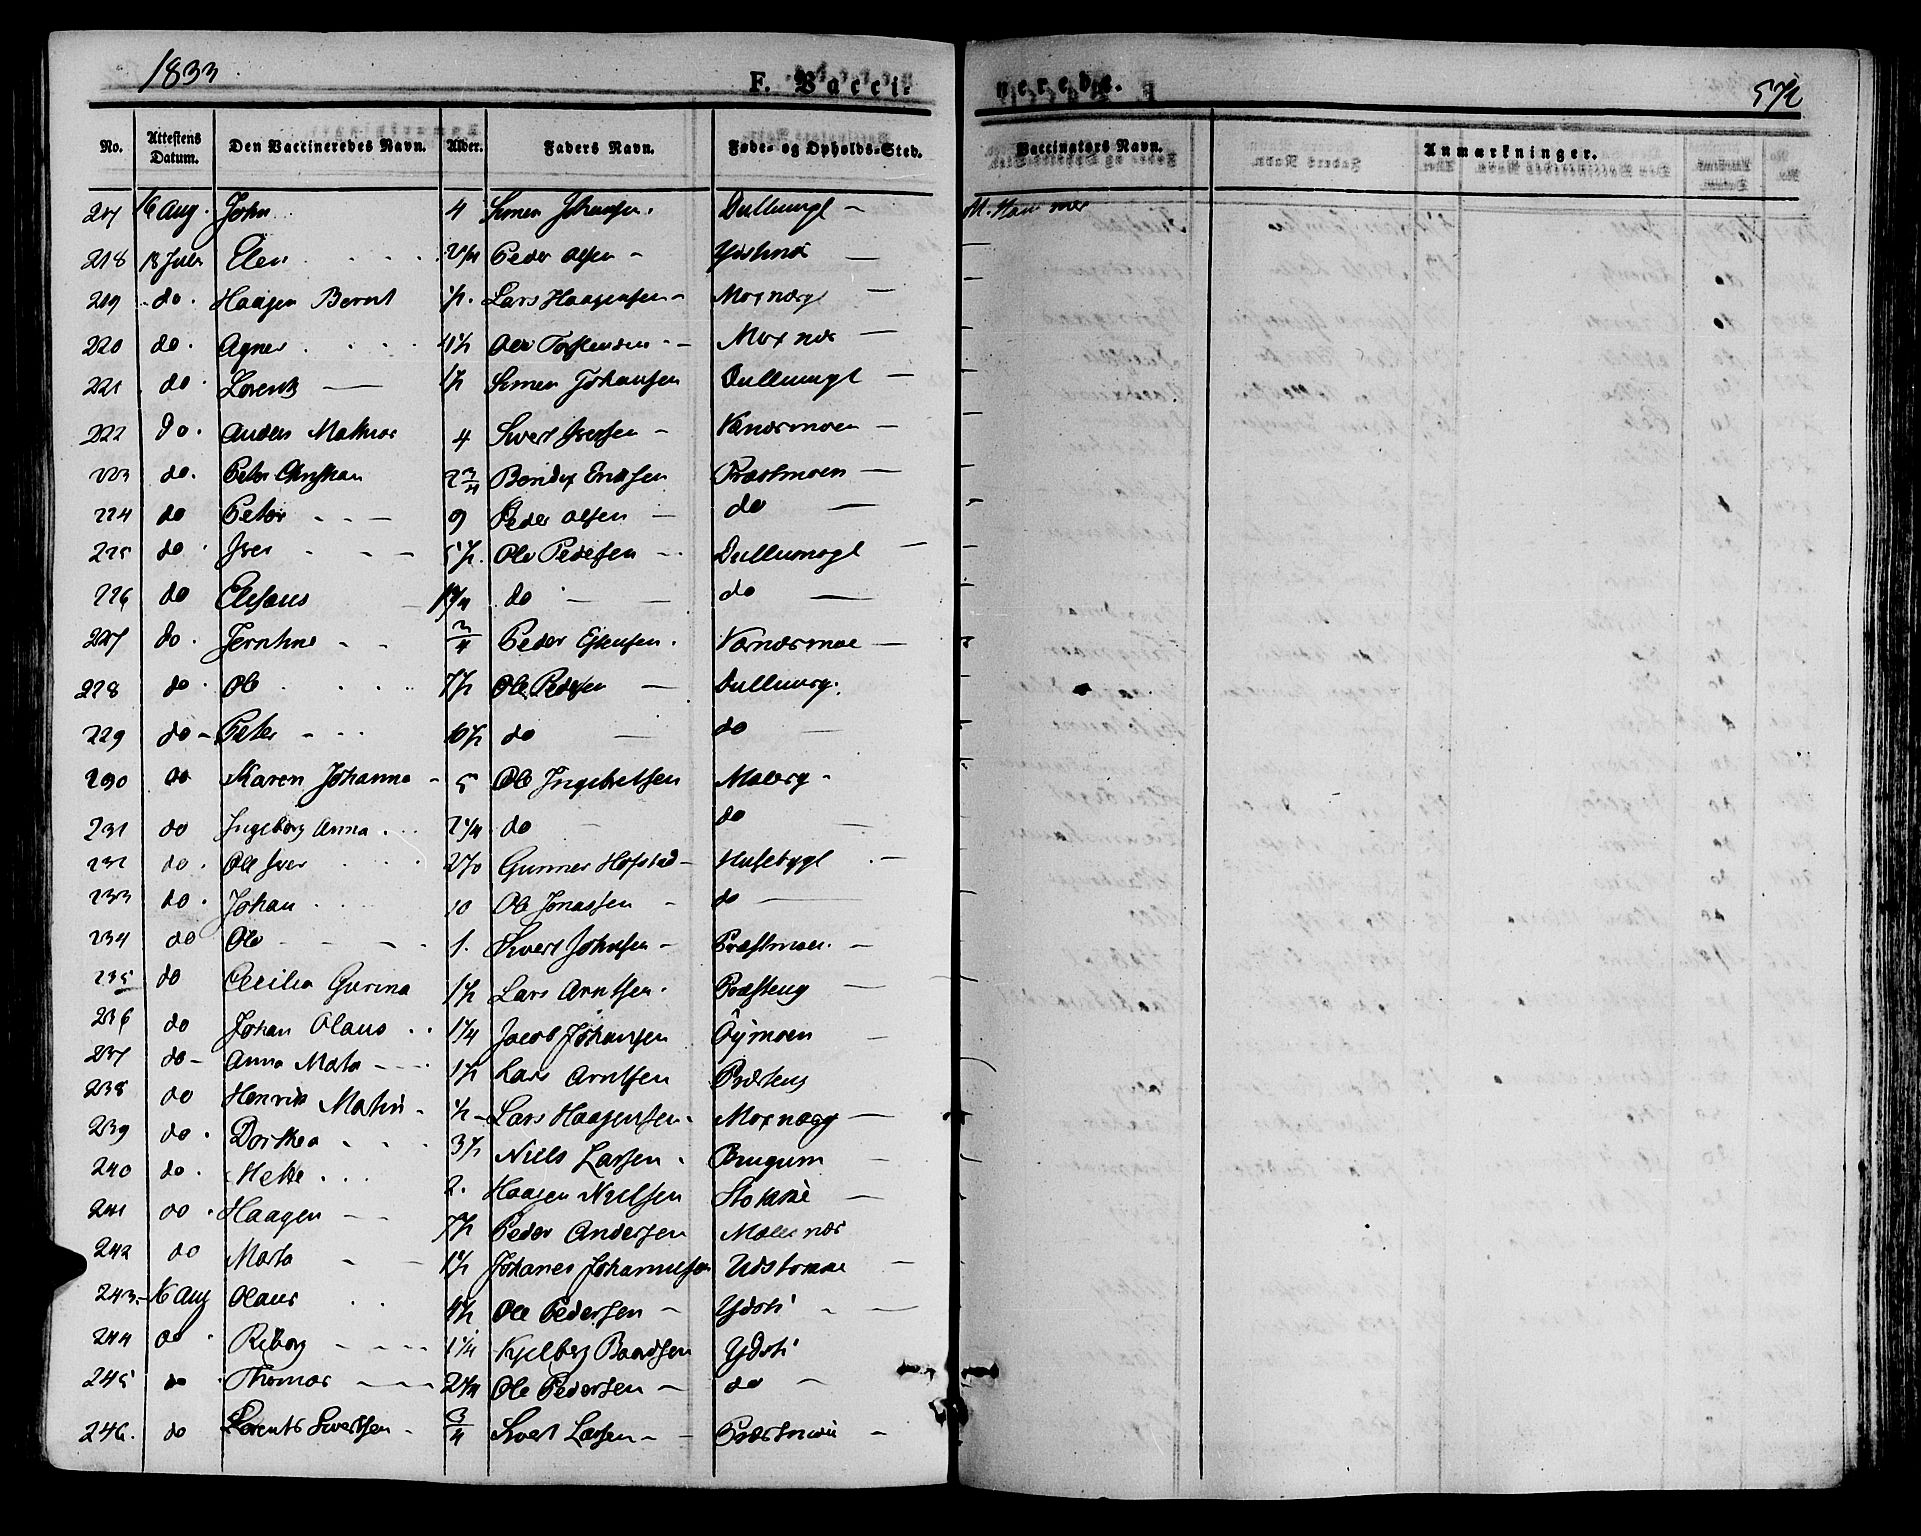 1833
F. Vaccinerede.
572
No. Attestens Datum. Den Vaccineredes Navn. Alder. Faders Navn. Føde- og Opholds-Sted. Vaccinators Navn. Anmærkninger.
217 16 Aug. John 4 Simen Johansen. M. Hammer
218 18 Julii Elen 2 1/4 Peder Olsen
219 do. Haagen Bernt 1/2. Lars Haagensen Moxnæsg
220 do. Agnes Ole Torstensen Moxnes
221 do. Lorents 1/2 Simen Johansen Dullumgl
222 do. Anders Mathias 4 Sivert Iversen Værnesmoen
223 do. Peter Christian 2 3/4 Bendix Ericksen Præstmoen
224 do Peter 9 Peder Olsen do
225 do Iver 5 1/2. Ole Pedersen
226 do do do
227 do. 3/4 Peder Værnesmoe
228 do. Ole 7 1/2 Ole Pedersen Dullumg.
229 do Peter 10 1/2 do do
230 do Karen Johanna 5 Ole Ingebretsen
231 do Ingeborg Anna 2 1/4 do do
232 do. Ole Iver Gunner Hofstad Husebygl
233 do. Johan 10 Ole Jonassen do
234 do Ole 1. Sivert Johnsen Præstmoen.
235 do Cecilia Gurina 1 1/2 Lars Arntsen. Præsteng
236 do Johan Olaus 1 1/4 Jacob Johansen Øymoen
237 do Anna Marta 1 1/2 Lars Arntsen Præsteng
238 do Henrik Martin 1/2 Lars Haagensen Moxnæsg
239 do. Dorthea 3 1/2 Niels Larsen
240 do. Mette 2. Haagen Nielsen
241 do. Haagen 7 1/2 Peder Andersen
242 do Marta 1 1/2 Johanes Johannessen
243. 16 Aug Olaus 4 1/2 Ole Pedersen Ydsti
244 do Reborg 1 1/4 Kjelberg Baardsen Ydsti
245 do Thomas 2 1/4 Ole Pedersen do
246. do Lorents Sivertsen 3/4 Sivert Larsen